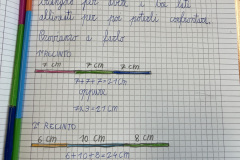 triangolo per avere i tre lati
allineati per poi poterli confrontare.
Proviamo a farlo
1° RECINTO
7 cm 7 cm 7 cm
7+7+7=21 cm
oppure
7x3=21 cm
2° RECINTO
6 cm 10 cm 8 cm
6+10+8=24 cm